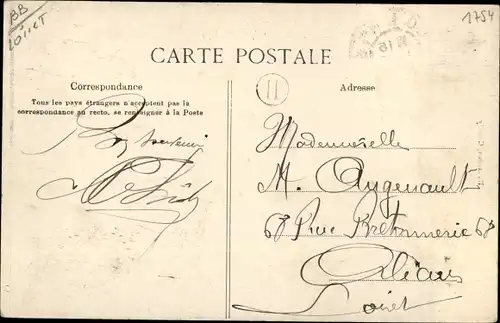 BB
LOIRET
1754
CARTE POSTALE
Correspondance
Adresse
Tous les pays étrangers n'acceptent pas la
correspondance au recto, se renseigner à la Poste
H
Bon souvenir
Mademoiselle
M. Augenault
68 Rue Bretonnerie 68
Orléans
Loiret